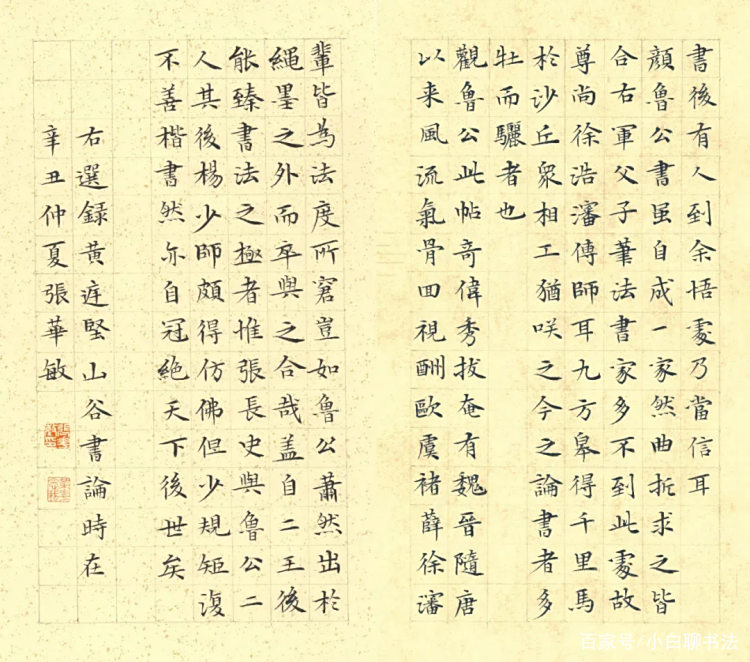 書後有人到余悟處乃當信耳
顔魯公書虽自成一家然曲折求之皆
合右軍父子筆法書家多不到此處故
尊尚徐浩瀋傳師耳九方皋得千里馬
於沙丘眾相工猶咲之今之論書者多
牡而驪者也
觀魯公此帖奇偉秀拔奄有魏晉隨唐
以来風流氣骨回視酬歐虞褚薛徐瀋
輩皆為法度所窘豈如魯公蕭然出於
繩墨之外而卒與之合哉盖自二王後
能臻書法之極者惟張長史與魯公二
人其後楊少師頗得仿佛但少規矩復
不善楷書然亦自冠絶天下後世矣
右選録黄庭堅山谷書論時在
辛丑仲夏張華敏
百家号/小白聊书法